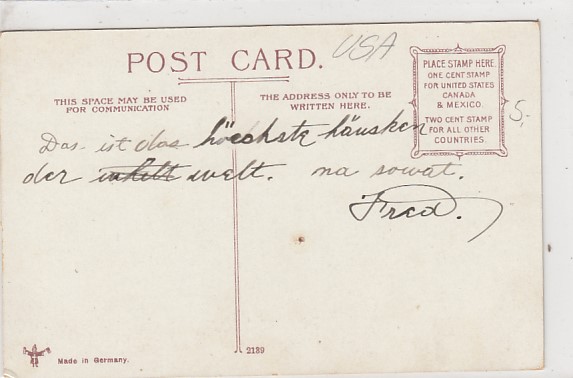 USA
POST CARD.
PLACE STAMP HERE
ONE CENT STAMP
FOR UNITED STATES
CANADA
& MEXICO.
TWO CENT STAMP
FOR ALL OTHER
COUNTRIES.
5.-
THIS SPACE MAY BE USED
FOR COMMUNICATION
THE ADDRESS ONLY TO BE
WRITTEN HERE.
Das ist das höechste häusken
der welt. na sowat.
Fred.
Made in Germany.
2189